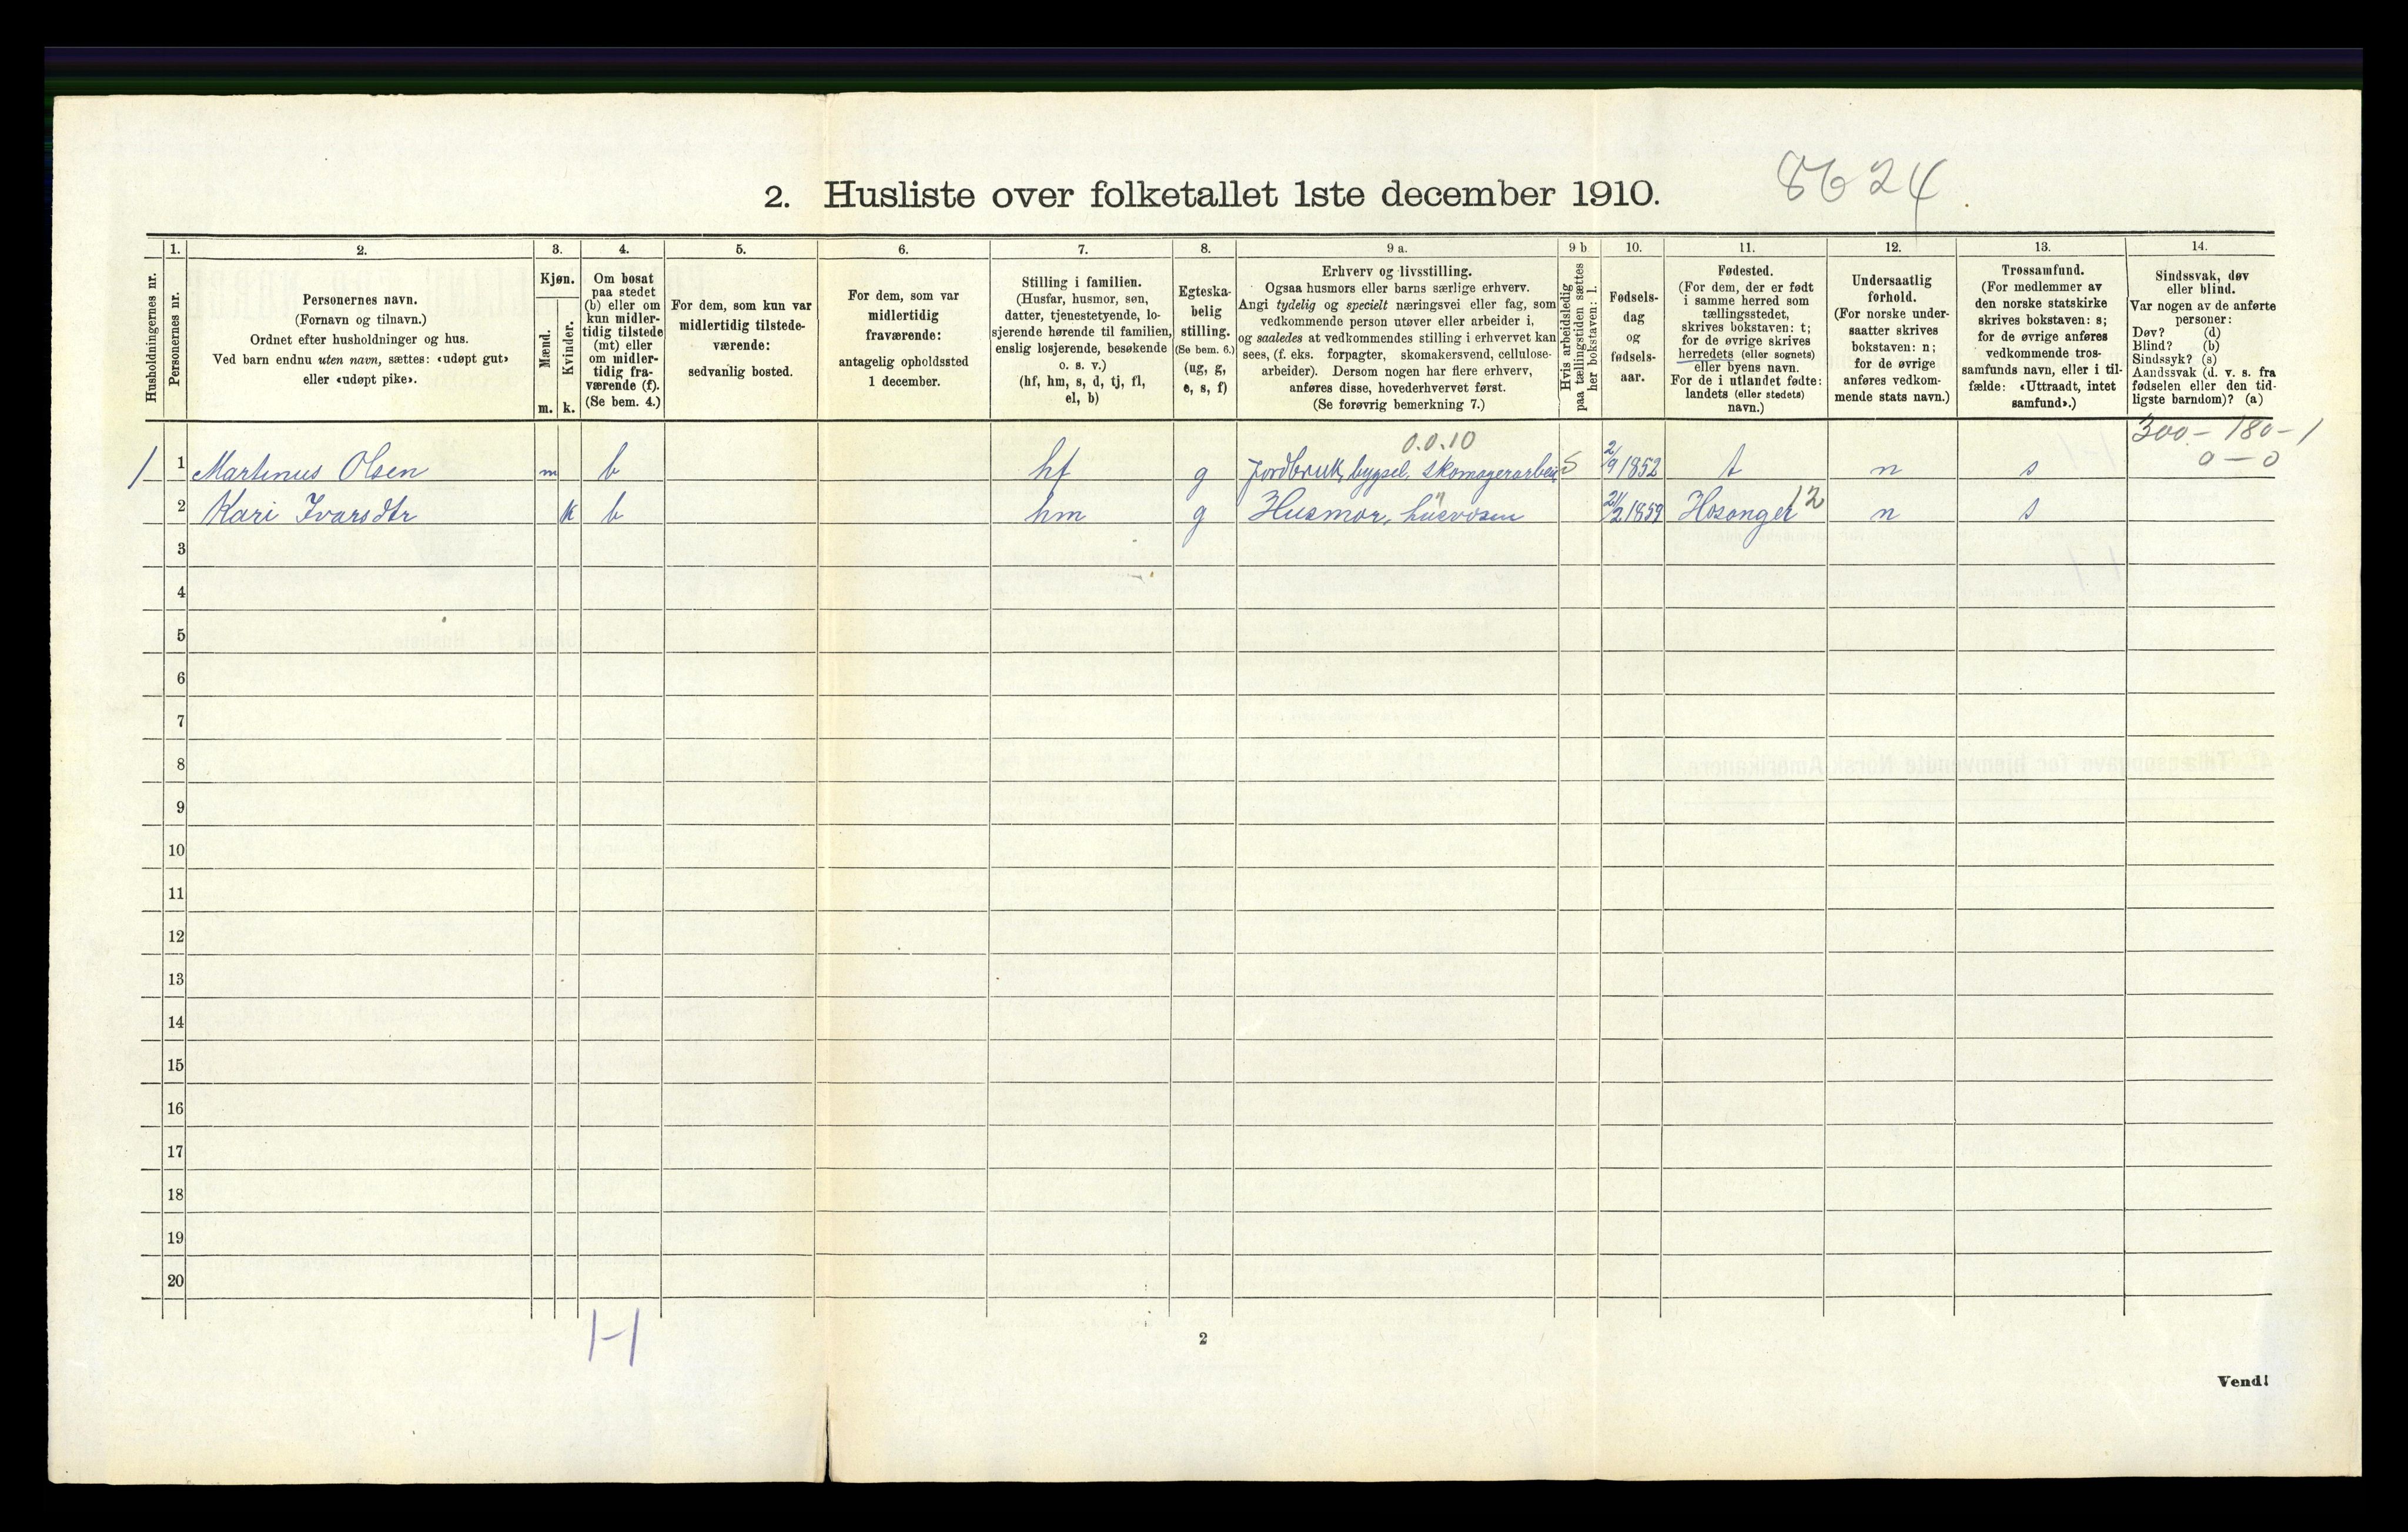 8624
2. Husliste over folketallet 1ste december 1910.
Husholdningernes nr.
1.
Personernes nr.
2.
Personernes navn.
(Fornavn og tilnavn.)
Ordnet efter husholdninger og hus.
Ved barn endnu uten navn, sættes: «udøpt gut»
eller «udøpt pike».
3.
Kjøn.
Mænd.
m.
Kvinder.
k.
4.
Om bosat
paa stedet
(b) eller om
kun midler-
tidig tilstede
(mt) eller
om midler-
tidig fra-
værende (f).
(Se bem. 4.)
5.
For dem, som kun var
midlertidig tilstede-
værende:
sedvanlig bosted.
6.
For dem, som var
midlertidig
fraværende:
antagelig opholdssted
1 december.
7.
Stilling i familien.
(Husfar, husmor, søn,
datter, tjenestetyende, lo-
sjerende hørende til familien,
enslig losjerende, besøkende
o. s. v.)
(hf, hm, s, d, tj, fl,
el, b)
8.
Egteska-
belig
stilling.
(Se bem. 6.)
(ug, g,
e, s, f)
9 a.
Erhverv og livsstilling.
Ogsaa husmors eller barns særlige erhverv.
Angi tydelig og specielt næringsvei eller fag, som
vedkommende person utøver eller arbeider i,
og saaledes at vedkommendes stilling i erhvervet kan
sees, (f. eks. forpagter, skomakersvend, cellulose-
arbeider). Dersom nogen har flere erhverv,
anføres disse, hovederhvervet først.
(Se forøvrig bemerkning 7.)
9 b
Hvis arbeidsledig
paa tællingstiden sættes
her bokstaven: l.
10.
Fødsels-
dag
og
fødsels-
aar.
11.
Fødested.
(For dem, der er født
i samme herred som
tællingsstedet,
skrives bokstaven: t;
for de øvrige skrives
herredets (eller sognets)
eller byens navn.
For de i utlandet fødte:
landets (eller stedets)
navn.)
12.
Undersaatlig
forhold.
(For norske under-
saatter skrives
bokstaven: n;
for de øvrige
anføres vedkom-
mende stats navn.)
13.
Trossamfund.
(For medlemmer av
den norske statskirke
skrives bokstaven: s;
for de øvrige anføres
vedkommende tros-
samfunds navn, eller i til-
fælde: «Uttraadt, intet
samfund».)
14.
Sindssvak, døv
eller blind.
Var nogen av de anførte
personer:
Døv? (d)
Blind? (b)
Sindssyk? (s)
Aandssvak (d. v. s. fra
fødselen eller den tid-
ligste barndom)? (a)
0.0.10 300 - 180 - 1
0 - 0
1 1 Martinus Olsen m b hf g Jordbruk, bygsel. Skomagerarbeid 2/9 1852 t n s
2 Kari Ivarsdtr k b hm g Husmor, 1859 Hosanger 12 n s
3
4
5
6
7
8
9
10
11
12
13
14
15
16
17
18
19
20
1-1
2
Vend!